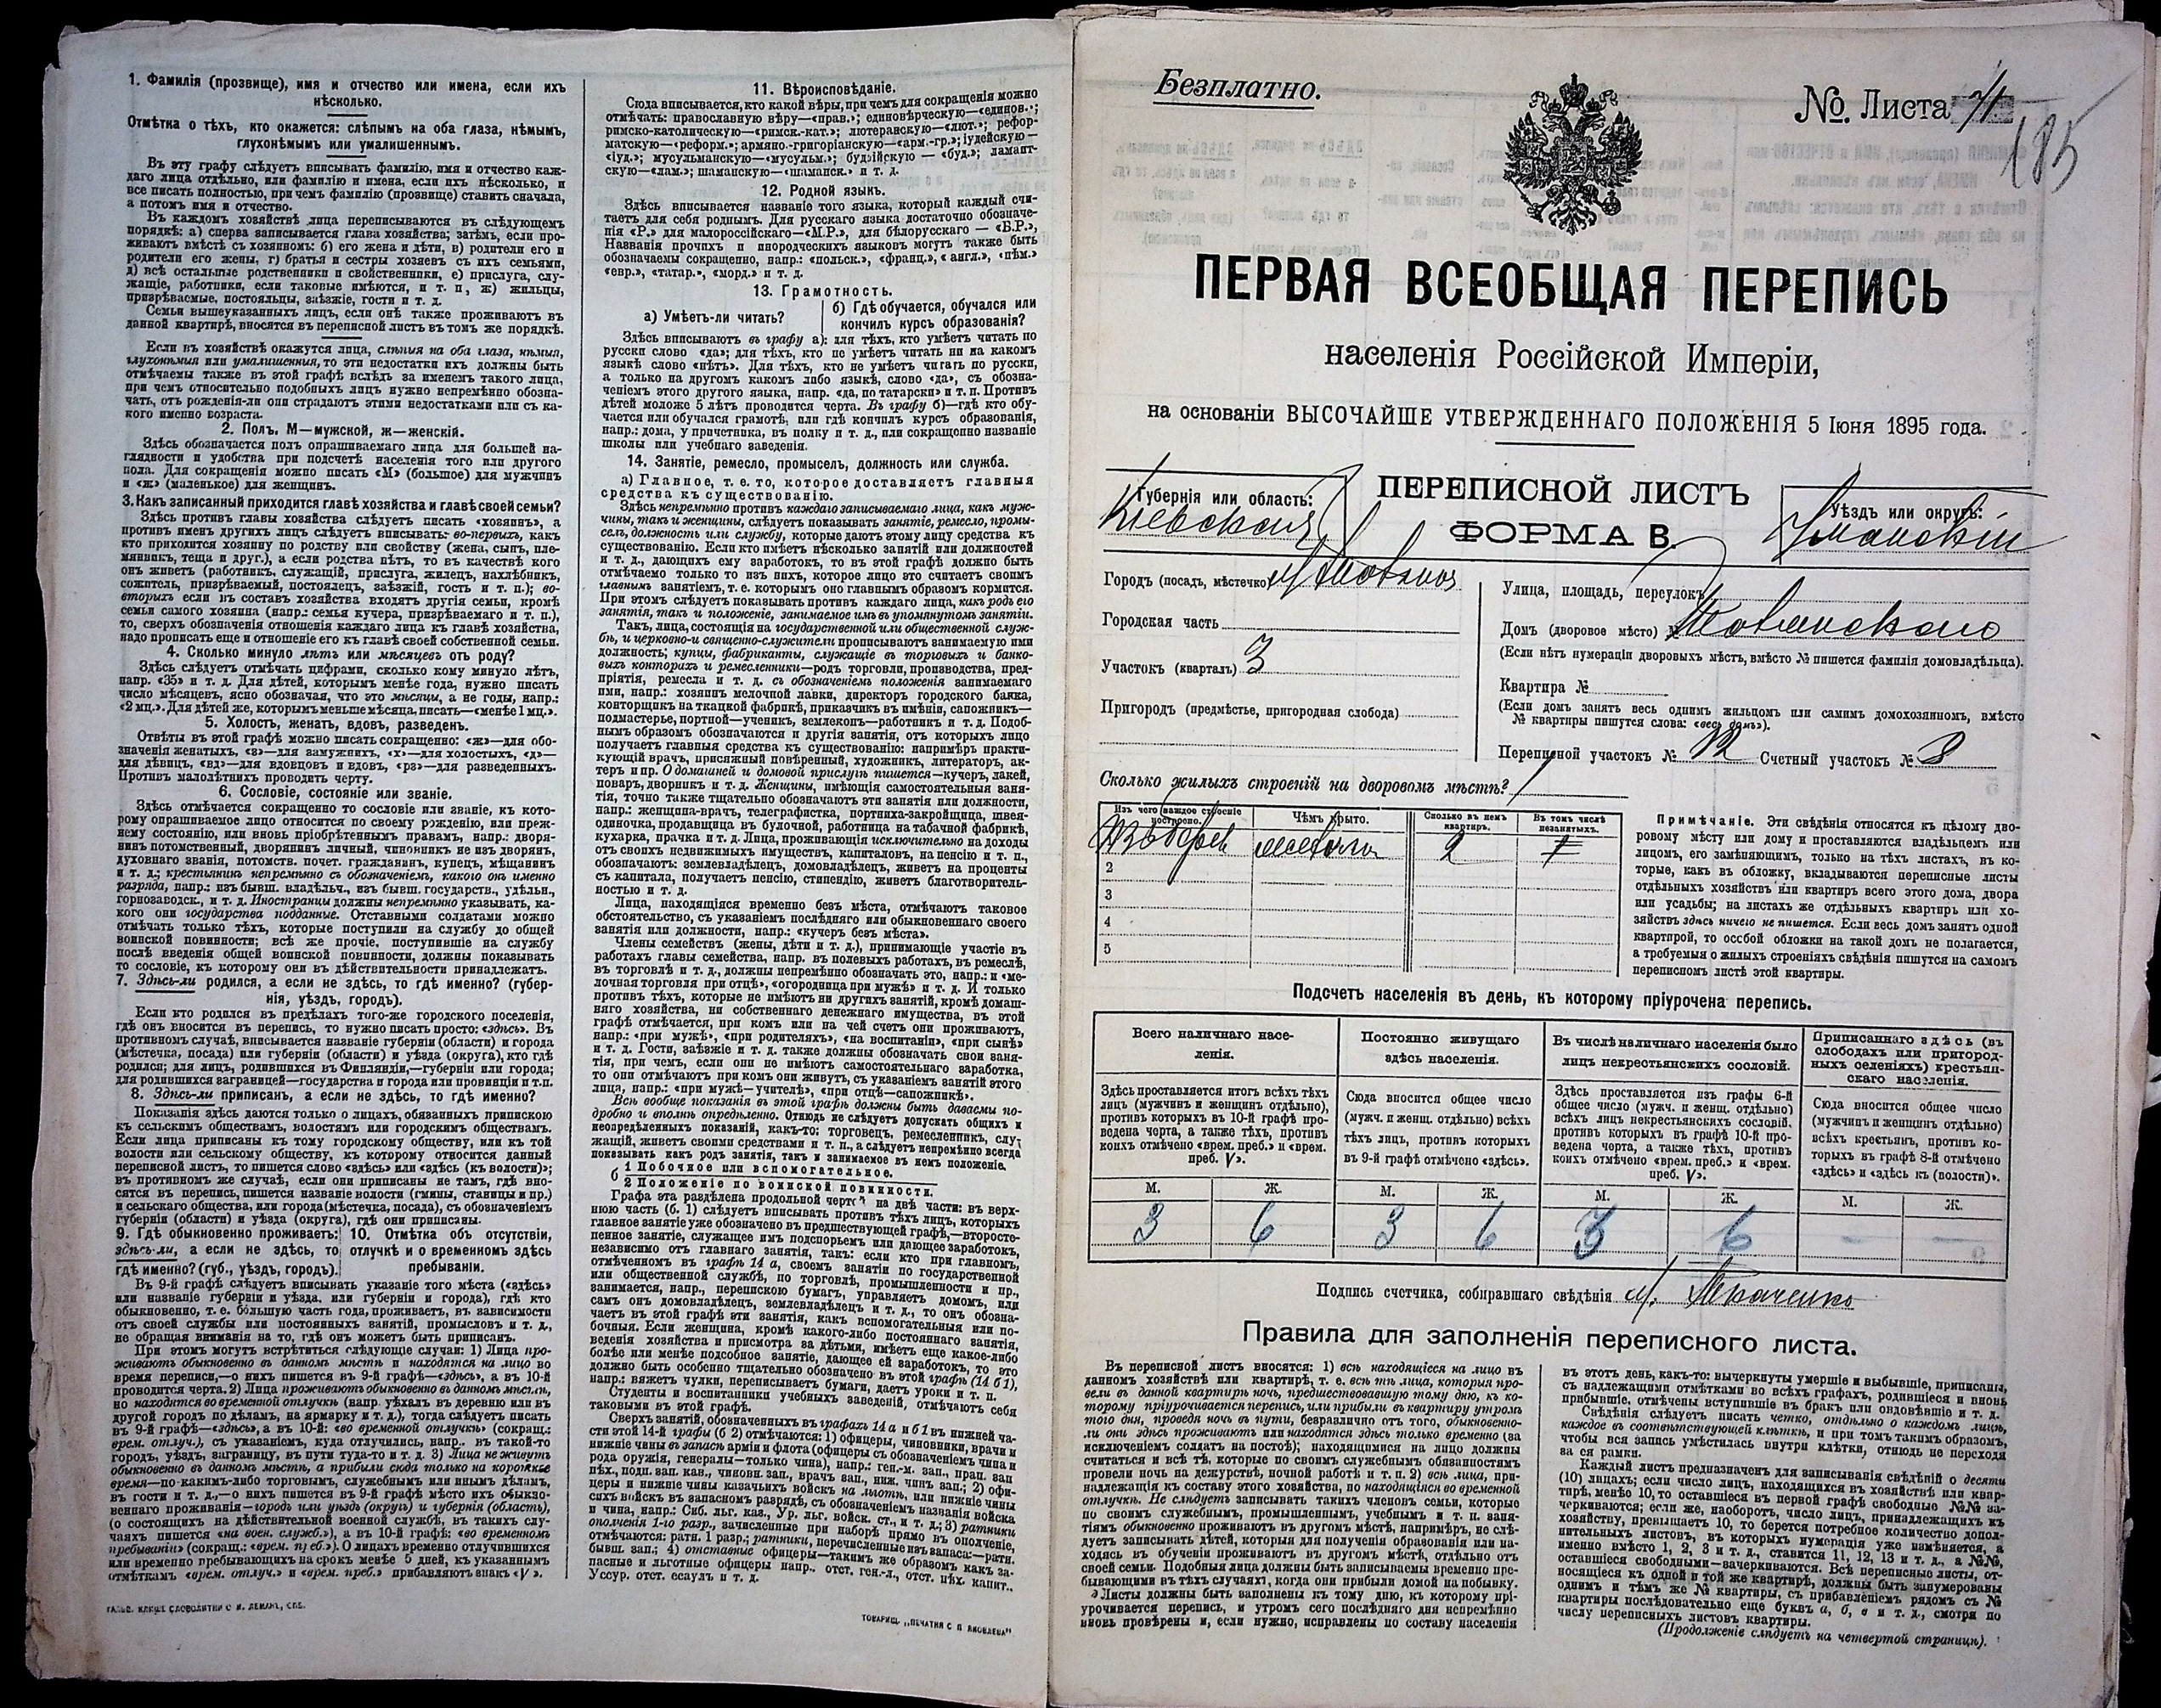 1. Фамилія (прозвище), имя и отчество или имена, если ихъ
нѣсколько.
Отмѣтка о тѣхъ, кто окажется: слѣпымъ на оба глаза, нѣмымъ,
глухонѣмымъ или умалишеннымъ.
Въ эту графу слѣдуетъ вписывать фамилію, имя и отчество каж-
даго лица отдѣльно, или фамилію и имена, если ихъ нѣсколько, и
все писать полностью, при чемъ фамилію (прозвище) ставить сначала,
а потомъ имя и отчество.
Въ каждомъ хозяйствѣ лица переписываются въ слѣдующемъ
порядкѣ: а) сперва записывается глава хозяйства; затѣмъ, если про-
живаютъ вмѣстѣ съ хозяиномъ: б) его жена и дѣти, в) родители его и
родители его жены, г) братья и сестры хозяевъ съ ихъ семьями,
д) всѣ остальные родственники и свойственники, е) прислуга, слу-
жащіе, работники, если таковые имѣются, и т. п., ж) жильцы,
призрѣваемые, постояльцы, заѣзжіе, гости и т. д.
Семьи вышеуказанныхъ лицъ, если онѣ также проживаютъ въ
данной квартирѣ, вносятся въ переписной листъ въ томъ же порядкѣ.
Если въ хозяйствѣ окажутся лица, слѣпыя на оба глаза, нѣмыя,
глухонѣмыя или умалишенныя, то эти недостатки ихъ должны быть
отмѣчаемы также въ этой графѣ вслѣдъ за именемъ такого лица,
при чемъ относительно подобныхъ лицъ нужно непремѣнно обозна-
чать, отъ рожденія-ли они страдаютъ этими недостатками или съ ка-
кого именно возраста.
2. Полъ. М—мужской, ж—женскій.
Здѣсь обозначается полъ опрашиваемаго лица для большей на-
глядности и удобства при подсчетѣ населенія того или другого
пола. Для сокращенія можно писать «М» (большое) для мужчинъ
и «ж» (маленькое) для женщинъ.
3. Какъ записанный приходится главѣ хозяйства и главѣ своей семьи?
Здѣсь противъ главы хозяйства слѣдуетъ писать «хозяинъ», а
противъ именъ другихъ лицъ слѣдуетъ вписывать: во-первыхъ, какъ
кто приходится хозяину по родству или свойству (жена, сынъ, пле-
мянникъ, теща и друг.), а если родства нѣтъ, то въ качествѣ кого
онъ живетъ (работникъ, служащій, прислуга, жилецъ, нахлѣбникъ,
сожитель, призрѣваемый, постоялецъ, заѣзжій, гость и т. п.); во-
вторыхъ если въ составъ хозяйства входятъ другія семьи, кромѣ
семьи самого хозяина (напр.: семья кучера, призрѣваемаго и т. п.),
то, сверхъ обозначенія отношенія каждаго лица къ главѣ хозяйства,
надо прописать еще и отношеніе его къ главѣ своей собственной семьи.
4. Сколько минуло лѣтъ или мѣсяцевъ отъ роду?
Здѣсь слѣдуетъ отмѣчать цифрами, сколько кому минуло лѣтъ,
напр. «35» и т. д. Для дѣтей, которымъ менѣе года, нужно писать
число мѣсяцевъ, ясно обозначая, что это мѣсяцы, а не годы, напр.:
«2 мц.». Для дѣтей же, которымъ меньше мѣсяца, писать—«менѣе 1 мц.».
5. Холостъ, женатъ, вдовъ, разведенъ.
Отвѣты въ этой графѣ можно писать сокращенно: «ж»—для обо-
значенія женатыхъ, «з»—для замужнихъ, «х»—для холостыхъ, «д»—
для дѣвицъ, «вд»—для вдовцовъ и вдовъ, «рз»—для разведенныхъ.
Противъ малолѣтнихъ проводить черту.
6. Сословіе, состояніе или званіе.
Здѣсь отмѣчается сокращенно то сословіе или званіе, къ кото-
рому опрашиваемое лицо относится по своему рожденію, или преж-
нему состоянію, или вновь пріобрѣтеннымъ правамъ, напр.: дворя-
нинъ потомственный, дворянинъ личный, чиновникъ не изъ дворянъ,
духовнаго званія, потомств. почет. гражданинъ, купецъ, мѣщанинъ
и т. д.; крестьянинъ непремѣнно съ обозначеніемъ, какого онъ именно
разряда, напр.: изъ бывш. владѣльч., изъ бывш. государств., удѣльн.,
горнозаводск., и т. д. Иностранцы должны непремѣнно указывать, ка-
кого они государства подданные. Отставными солдатами можно
отмѣчать только тѣхъ, которые поступили на службу до общей
воинской повинности; всѣ же прочіе, поступившіе на службу
послѣ введенія общей воинской повинности, должны показывать
то сословіе, къ которому они въ дѣйствительности принадлежатъ.
7. Здѣсь-ли родился, а если не здѣсь, то гдѣ именно? (губер-
нія, уѣздъ, городъ).
Если кто родился въ предѣлахъ того-же городского поселенія,
гдѣ онъ вносится въ перепись, то нужно писать просто: «здѣсь». Въ
противномъ случаѣ, вписывается названіе губерніи (области) и города
(мѣстечка, посада) или губерніи (области) и уѣзда (округа), кто гдѣ
родился; для лицъ, родившихся въ Финляндіи,—губерніи или города;
для родившихся заграницей—государства и города или провинціи и т.п.
8. Здѣсь-ли приписанъ, а если не здѣсь, то гдѣ именно?
Показанія здѣсь даются только о лицахъ, обязанныхъ припискою
къ сельскимъ обществамъ, волостямъ или городскимъ обществамъ.
Если лица приписаны къ тому городскому обществу, или къ той
волости или сельскому обществу, къ которому относится данный
переписной листъ, то пишется слово «здѣсь» или «здѣсь (къ волости)»;
въ противномъ же случаѣ, если они приписаны не тамъ, гдѣ вно-
сятся въ перепись, пишется названіе волости (гмины, станицы и пр.)
и сельскаго общества, или города (мѣстечка, посада), съ обозначеніемъ
губерніи (области) и уѣзда (округа), гдѣ они приписаны.
9. Гдѣ обыкновенно проживаетъ:
здѣсь-ли, а если не здѣсь, то
гдѣ именно? (губ., уѣздъ, городъ).
10. Отмѣтка объ отсутствіи,
отлучкѣ и о временномъ здѣсь
пребываніи.
Въ 9-й графѣ слѣдуетъ вписывать указаніе того мѣста («здѣсь»
или названіе губерніи и уѣзда, или губерніи и города), гдѣ кто
обыкновенно, т. е. бо́льшую часть года, проживаетъ, въ зависимости
отъ своей службы или постоянныхъ занятій, промысловъ и т. д.,
не обращая вниманія на то, гдѣ онъ можетъ быть приписанъ.
При этомъ могутъ встрѣтиться слѣдующіе случаи: 1) Лица про-
живаютъ обыкновенно въ данномъ мѣстѣ и находятся на лицо во
время переписи,—о нихъ пишется въ 9-й графѣ—«здѣсь», а въ 10-й
проводится черта. 2) Лица проживаютъ обыкновенно въ данномъ мѣстѣ,
но находятся во временной отлучкѣ (напр. уѣхалъ въ деревню или въ
другой городъ по дѣламъ, на ярмарку и т. д.), тогда слѣдуетъ писать
въ 9-й графѣ—«здѣсь», а въ 10-й: «во временной отлучкѣ» (сокращ.:
врем. отлуч.), съ указаніемъ, куда отлучились, напр., въ такой-то
городъ, уѣздъ, заграницу, въ пути туда-то и т. д. 3) Лица не живутъ
обыкновенно въ данномъ мѣстѣ, а прибыли сюда только на короткое
время—по какимъ-либо торговымъ, служебнымъ или инымъ дѣламъ,
въ гости и т. д.,—о нихъ пишется въ 9-й графѣ мѣсто ихъ обыкно-
веннаго проживанія—городъ или уѣздъ (округъ) и губернія (область),
(о состоящихъ на дѣйствительной военной службѣ, въ такихъ слу-
чаяхъ пишется «на воен. служб.»), а въ 10-й графѣ: «во временномъ
пребываніи» (сокращ.: «врем. преб.»). О лицахъ временно отлучившихся
или временно пребывающихъ на срокъ менѣе 5 дней, къ указаннымъ
отмѣткамъ «врем. отлуч.» и «врем. преб.» прибавляютъ знакъ «V».
11. Вѣроисповѣданіе.
Сюда вписывается, кто какой вѣры, при чемъ для сокращенія можно
отмѣчать: православную вѣру—«прав.»; единовѣрческую—«единов.»;
римско-католическую—«римск.-кат.»; лютеранскую—«лют.»; рефор-
матскую—«реформ.»; армяно.-григоріанскую—«арм.-гр.»; іудейскую—
«іуд.»; мусульманскую—«мусульм.»; буддійскую — «буд.»; ламаит-
скую—«лам.»; шаманскую—«шаманск.» и т. д.
12. Родной языкъ.
Здѣсь вписывается названіе того языка, который каждый счи-
таетъ для себя роднымъ. Для русскаго языка достаточно обозначе-
нія «Р.» для малороссійскаго—«М.Р.», для бѣлорусскаго — «Б.Р.»,
Названія прочихъ и инородческихъ языковъ могутъ также быть
обозначаемы сокращенно, напр.: «польск.», «франц.», «англ.», «нѣм.»
«евр.», «татар.», «морд.» и т. д.
13. Грамотность.
а) Умѣетъ-ли читать?
б) Гдѣ обучается, обучался или
кончилъ курсъ образованія?
Здѣсь вписываютъ въ графу а): для тѣхъ, кто умѣетъ читать по
русски слово «да»; для тѣхъ, кто не умѣетъ читать ни на какомъ
языкѣ слово «нѣтъ». Для тѣхъ, кто не умѣетъ читать по русски,
а только на другомъ какомъ либо языкѣ, слово «да», съ обозна-
ченіемъ этого другого языка, напр. «да, по татарски» и т. п. Противъ
дѣтей моложе 5 лѣтъ проводится черта. Въ графу б)—гдѣ кто обу-
чается или обучался грамотѣ, или гдѣ кончилъ курсъ образованія,
напр.: дома, у причетника, въ полку и т. д., или сокращенно названіе
школы или учебнаго заведенія.
14. Занятіе, ремесло, промыселъ, должность или служба.
а) Главное, т. е. то, которое доставляетъ главныя
средства къ существованію.
Здѣсь непремѣнно противъ каждаго записываемаго лица, какъ муж-
чины, такъ и женщины, слѣдуетъ показывать занятіе, ремесло, промы-
селъ, должность или службу, которые даютъ этому лицу средства къ
существованію. Если кто имѣетъ нѣсколько занятій или должностей
и т. д., дающихъ ему заработокъ, то въ этой графѣ должно быть
отмѣчаемо только то изъ нихъ, которое лицо это считаетъ своимъ
главнымъ занятіемъ, т. е. которымъ оно главнымъ образомъ кормится.
При этомъ слѣдуетъ показывать противъ каждаго лица, какъ родъ его
занятія, такъ и положеніе, занимаемое имъ въ упомянутомъ занятіи.
Такъ, лица, состоящія на государственной или общественной служ-
бѣ, и церковно-и священно-служители прописываютъ занимаемую ими
должность; купцы, фабриканты, служащіе въ торговыхъ и банко-
выхъ конторахъ и ремесленники—родъ торговли, производства, пред-
пріятія, ремесла и т. д. съ обозначеніемъ положенія занимаемаго
ими, напр.: хозяинъ мелочной лавки, директоръ городского банка,
конторщикъ на ткацкой фабрикѣ, приказчикъ въ имѣніи, сапожникъ—
подмастерье, портной—ученикъ, землекопъ—работникъ и т. д. Подоб-
нымъ образомъ обозначаются и другія занятія, отъ которыхъ лицо
получаетъ главныя средства къ существованію: напримѣръ практи-
кующій врачъ, присяжный повѣренный, художникъ, литераторъ, ак-
теръ и пр. О домашней и домовой прислугѣ пишется—кучеръ, лакей,
поваръ, дворникъ и т. д. Женщины, имѣющія самостоятельныя заня-
тія, точно также тщательно обозначаютъ эти занятія или должности,
напр.: женщина-врачъ, телеграфистка, портниха-закройщица, швея-
одиночка, продавщица въ булочной, работница на табачной фабрикѣ,
кухарка, прачка и т. д. Лица, проживающія исключительно на доходы
отъ своихъ недвижимыхъ имуществъ, капиталовъ, на пенсію и т. п.,
обозначаютъ: землевладѣлецъ, домовладѣлецъ, живетъ на проценты
съ капитала, получаетъ пенсію, стипендію, живетъ благотворитель-
ностью и т. д.
Лица, находящіяся временно безъ мѣста, отмѣчаютъ таковое
обстоятельство, съ указаніемъ послѣдняго или обыкновеннаго своего
занятія или должности, напр.: «кучеръ безъ мѣста».
Члены семействъ (жены, дѣти и т. д.), принимающіе участіе въ
работахъ главы семейства, напр. въ полевыхъ работахъ, въ ремеслѣ,
въ торговлѣ и т. д., должны непремѣнно обозначать это, напр.: и «ме-
лочная торговля при отцѣ», «огородница при мужѣ» и т. д. И только
противъ тѣхъ, которые не имѣютъ ни другихъ занятій, кромѣ домаш-
няго хозяйства, ни собственнаго денежнаго имущества, въ этой
графѣ отмѣчается, при комъ или на чей счетъ они проживаютъ,
напр.: «при мужѣ», «при родителяхъ», «на воспитаніи», «при сынѣ»
и т. д. Гости, заѣзжіе и т. д. также должны обозначать свои заня-
тія, при чемъ, если они не имѣютъ самостоятельнаго заработка,
то они отмѣчаютъ при комъ они живутъ, съ указаніемъ занятій этого
лица, напр.: «при мужѣ—учителѣ», «при отцѣ—сапожникѣ».
Всѣ вообще показанія въ этой графѣ должны быть даваемы по-
дробно и вполнѣ опредѣленно. Отнюдь не слѣдуетъ допускать общихъ и
неопредѣленныхъ показаній, какъ-то: торговецъ, ремесленникъ, слу-
жащій, живетъ своими средствами и т. п., а слѣдуетъ непремѣнно всегда
показывать какъ родъ занятія, такъ и занимаемое въ немъ положеніе.
б 1 Побочное или вспомогательное.
2 Положеніе по воинской повинности.
Графа эта раздѣлена продольной чертой на двѣ части: въ верх-
нюю часть (б. 1) слѣдуетъ вписывать противъ тѣхъ лицъ, которыхъ
главное занятіе уже обозначено въ предшествующей графѣ,—второсте-
пенное занятіе, служащее имъ подспорьемъ или дающее заработокъ,
независимо отъ главнаго занятія, такъ: если кто при главномъ,
отмѣченномъ въ графѣ 14 а, своемъ занятіи по государственной
или общественной службѣ, по торговлѣ, промышленности и пр.,
занимается, напр., перепискою бумагъ, управляетъ домомъ, или
самъ онъ домовладѣлецъ, землевладѣлецъ и т. д., то онъ обозна-
чаетъ въ этой графѣ эти занятія, какъ вспомогательныя или по-
бочныя. Если женщина, кромѣ какого-либо постояннаго занятія,
веденія хозяйства и присмотра за дѣтьми, имѣетъ еще какое-либо
болѣе или менѣе подсобное занятіе, дающее ей заработокъ, то это
должно быть особенно тщательно обозначено въ этой графѣ (14 б 1),
напр.: вяжетъ чулки, переписываетъ бумаги, даетъ уроки и т. п.
Студенты и воспитанники учебныхъ заведеній, отмѣчаютъ себя
таковыми въ этой графѣ.
Сверхъ занятій, обозначенныхъ въ графахъ 14 а и б 1 въ нижней ча-
сти этой 14-й графы (б 2) отмѣчаются: 1) офицеры, чиновники, врачи и
нижніе чины въ запасѣ арміи и флота (офицеры съ обозначеніемъ чина и
рода оружія, генералы—только чина), напр.: ген.-м. зап., прап. зап
пѣх., подп. зап. кав., чиновн. зап., врачъ зап., ниж. чинъ зап.; 2) офи-
церы и нижніе чины казачьихъ войскъ на льготѣ, или нижніе чины
сихъ войскъ въ запасномъ разрядѣ, съ обозначеніемъ названія войска
и чина, напр.: Сиб. льг. каз., Ур. льг. войск. ст., и т. д.; 3) ратники
ополченія 1-го разр., зачисленные при наборѣ прямо въ ополченіе,
отмѣчаются: ратн. 1 разр.; ратники, перечисленные изъ запаса:—ратн.
бывш. зап.; 4) отставные офицеры—такимъ же образомъ какъ за-
пасные и льготные офицеры напр., отст. ген.-л., отст. пѣх. капит.,
Уссур. отст. есаулъ и т. д.
ТОВАРИЩ. „ПЕЧАТНЯ С П ЯКОВЛЕВА"
Безплатно.
№ Листа
185
ПЕРВАЯ ВСЕОБЩАЯ ПЕРЕПИСЬ
населенія Россійской Имперіи,
на основаніи ВЫСОЧАЙШЕ УТВЕРЖДЕННАГО ПОЛОЖЕНІЯ 5 Іюня 1895 года.
Губернія или область:
Кіевская
ПЕРЕПИСНОЙ ЛИСТЪ
ФОРМА В.
Уѣздъ или округъ:
Уманскій
Городъ (посадъ, мѣстечко)
Городская часть
Участокъ (кварталъ) 3
Пригородъ (предмѣстье, пригородная слобода)
Улица, площадь, переулокъ
Домъ (дворовое мѣсто) №
(Если нѣтъ нумераціи дворовыхъ мѣстъ, вмѣсто № пишется фамилія домовладѣльца).
Квартира №
(Если домъ занятъ весь однимъ жильцомъ или самимъ домохозяиномъ, вмѣсто
№ квартиры пишутся слова: «весь домъ»).
Переписной участокъ № 12 Счетный участокъ № 8
Сколько жилыхъ строеній на дворовомъ мѣстѣ? 1
Изъ чего каждое строеніе
построено.
Чѣмъ крыто.
Сколько въ немъ
квартиръ.
Въ томъ числѣ
незанятыхъ.
2
2
3
4
5
Примѣчаніе. Эти свѣдѣнія относятся къ цѣлому дво-
ровому мѣсту или дому и проставляются владѣльцемъ или
лицомъ, его замѣняющимъ, только на тѣхъ листахъ, въ ко-
торые, какъ въ обложку, вкладываются переписные листы
отдѣльныхъ хозяйствъ или квартиръ всего этого дома, двора
или усадьбы; на листахъ же отдѣльныхъ квартиръ или хо-
зяйствъ здѣсь ничего не пишется. Если весь домъ занятъ одной
квартирой, то особой обложки на такой домъ не полагается,
а требуемыя о жилыхъ строеніяхъ свѣдѣнія пишутся на самомъ
переписномъ листѣ этой квартиры.
Подсчетъ населенія въ день, къ которому пріурочена перепись.
Всего наличнаго насе-
ленія.
Постоянно живущаго
здѣсь населенія.
Въ числѣ наличнаго населенія было
лицъ некрестьянскихъ сословій.
Приписаннаго здѣсь (въ
слободахъ или пригород-
ныхъ селеніяхъ) крестьян-
скаго населенія.
Здѣсь проставляется итогъ всѣхъ тѣхъ
лицъ (мужчинъ и женщинъ отдѣльно),
противъ которыхъ въ 10-й графѣ про-
ведена черта, а также тѣхъ, противъ
коихъ отмѣчено «врем. преб.» и «врем.
преб. V».
Сюда вносится общее число
(мужч. и женщ. отдѣльно) всѣхъ
тѣхъ лицъ, противъ которыхъ
въ 9-й графѣ отмѣчено «здѣсь».
Здѣсь проставляется изъ графы 6-й
общее число (мужч. и женщ. отдѣльно)
всѣхъ лицъ некрестьянскихъ сословій,
противъ которыхъ въ графѣ 10-й про-
ведена черта, а также тѣхъ, противъ
коихъ отмѣчено «врем. преб.» и «врем.
преб. V».
Сюда вносится общее число
(мужчинъ и женщинъ отдѣльно)
всѣхъ крестьянъ, противъ ко-
торыхъ въ графѣ 8-й отмѣчено
«здѣсь» и «здѣсь къ (волости)».
М. Ж. М. Ж. М. Ж. М. Ж.
3 6 3 6 3 6 - -
Подпись счетчика, собиравшаго свѣдѣнія М. Ткаченко
Правила для заполненія переписного листа.
Въ переписной листъ вносятся: 1) всѣ находящіеся на лицо въ
данномъ хозяйствѣ или квартирѣ, т. е. всѣ тѣ лица, которыя про-
вели въ данной квартирѣ ночь, предшествовавшую тому дню, къ ко-
торому пріурочивается перепись, или прибыли въ квартиру утромъ
того дня, проведя ночь въ пути, безразлично отъ того, обыкновенно-
ли они здѣсь проживаютъ или находятся здѣсь только временно (за
исключеніемъ солдатъ на постоѣ); находящимися на лицо должны
считаться и всѣ тѣ, которые по своимъ служебнымъ обязанностямъ
провели ночь на дежурствѣ, ночной работѣ и т. п. 2) всѣ лица, при-
надлежащія къ составу этого хозяйства, но находящіяся во временной
отлучкѣ. Не слѣдуетъ записывать такихъ членовъ семьи, которые
по своимъ служебнымъ, промышленнымъ, учебнымъ и т. п. заня-
тіямъ обыкновенно проживаютъ въ другомъ мѣстѣ, напримѣръ, не слѣ-
дуетъ записывать дѣтей, которыя для полученія образованія или на-
ходясь въ обученіи проживаютъ въ другомъ мѣстѣ, отдѣльно отъ
своей семьи. Подобныя лица должны быть записываемы временно пре-
бывающими въ тѣхъ случаяхъ, когда они прибыли домой на побывку.
Листы должны быть заполнены къ тому дню, къ которому прі-
урочивается перепись, и утромъ сего послѣдняго дня непремѣнно
вновь провѣрены и, если нужно, исправлены по составу населенія
въ этотъ день, какъ-то: вычеркнуты умершіе и выбывшіе, приписаны,
съ надлежащими отмѣтками во всѣхъ графахъ, родившіеся и вновь
прибывшіе, отмѣчены вступившіе въ бракъ или овдовѣвшіе и т. д.
Свѣдѣнія слѣдуетъ писать четко, отдѣльно о каждомъ лицѣ,
каждое въ соотвѣтствующей клѣткѣ, и при томъ такимъ образомъ,
чтобы вся запись умѣстилась внутри клѣтки, отнюдь не переходя
за ея рамки.
Каждый листъ предназначенъ для записыванія свѣдѣній о десяти
(10) лицахъ; если число лицъ, находящихся въ хозяйствѣ или квар-
тирѣ, менѣе 10, то оставшіеся въ первой графѣ свободные №№ за-
черкиваются; если же, наоборотъ, число лицъ, принадлежащихъ къ
хозяйству, превышаетъ 10, то берется потребное количество допол-
нительныхъ листовъ, въ которыхъ нумерація уже измѣняется, а
именно вмѣсто 1, 2, 3 и т. д., ставится 11, 12, 13 и т. д., а №№,
оставшіеся свободными—вачеркиваются. Всѣ переписные листы, от-
носящіеся къ одной и той же квартирѣ, должны быть занумерованы
однимъ и тѣмъ же № квартиры, съ прибавленіемъ рядомъ съ №
квартиры послѣдовательно еще буквъ а, б, в и т. д., смотря по
числу переписныхъ листовъ квартиры.
(Продолженіе слѣдуетъ на четвертой страницѣ).